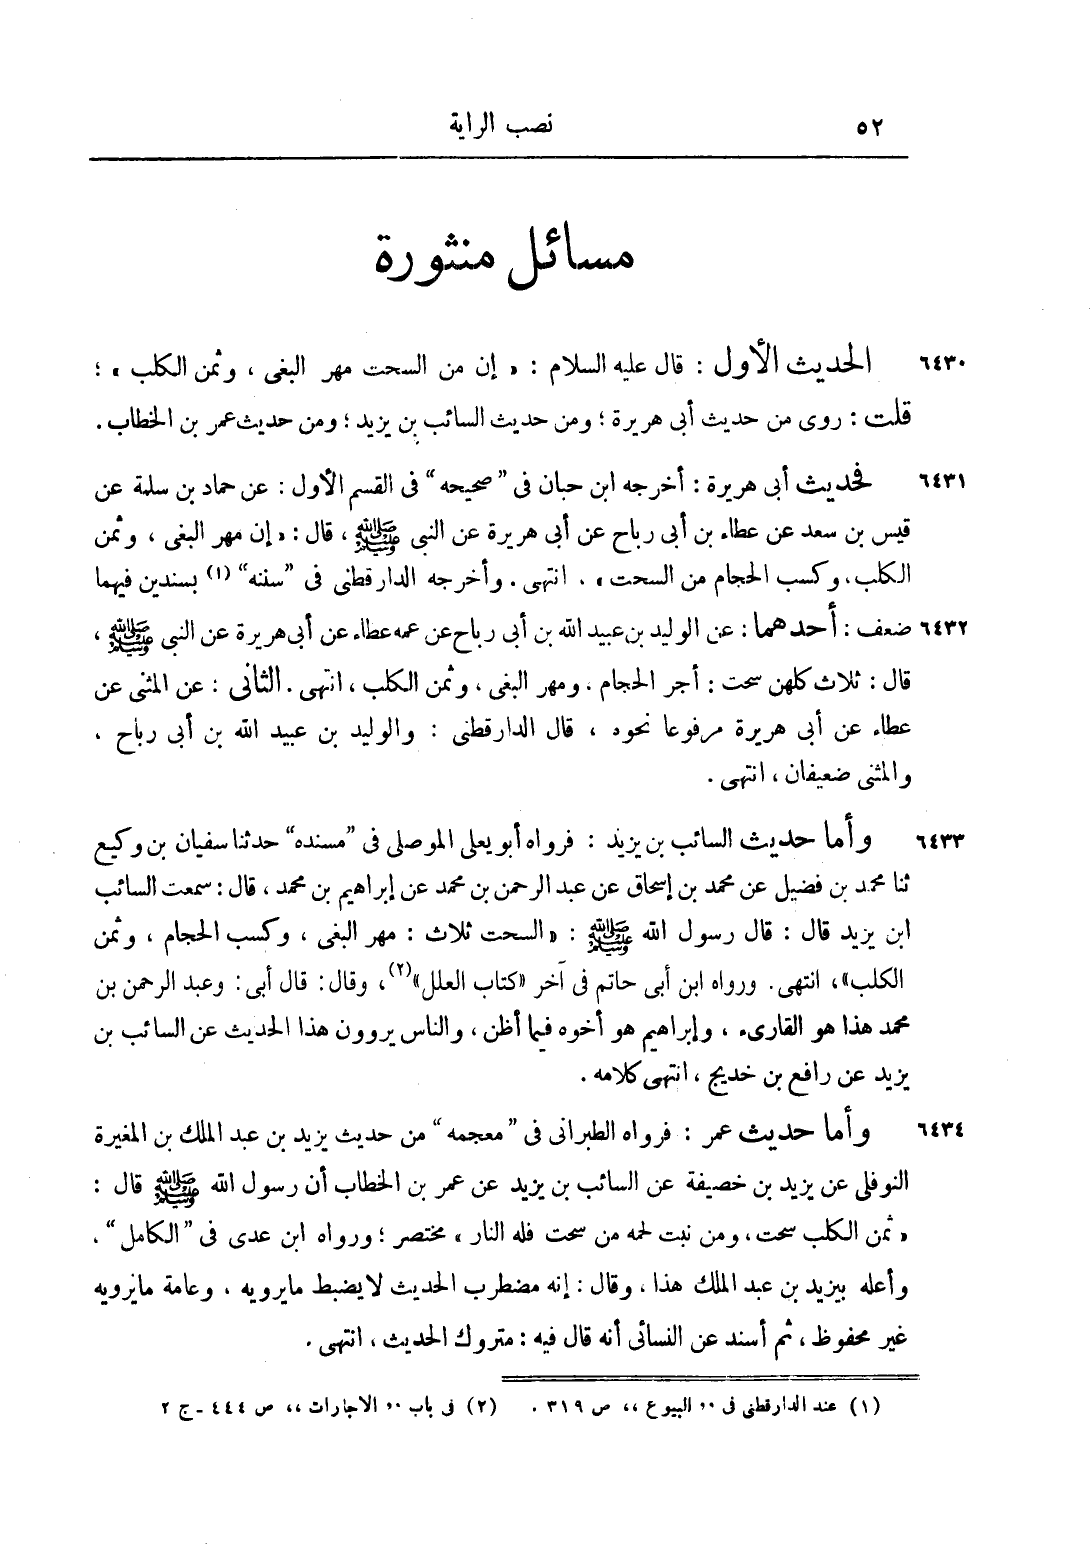 ٥٢ نصب الراية
مسائل منثورة
٦٤٣٠ الحديث الأول : قال عليه السلام : « إن من السحت مهر البغى ، وثمن الكلب » ؛
قلت : روى من حديث أبى هريرة ؛ ومن حديث السائب بن يزيد ؛ ومن حديث عمر بن الخطاب .
٦٤٣١ فحديث أبى هريرة : أخرجه ابن حبان فى "صحيحه" فى القسم الأول : عن حماد بن سلمة عن
قيس بن سعد عن عطاء بن أبى رباح عن أبى هريرة عن النبى ﷺ ، قال : « إن مهر البغى ، وثمن
الكلب ، وكسب الحجام من السحت » . انتهى . وأخرجه الدارقطنى فى "سننه" (١) بسندين فيهما
٦٤٣٢ ضعف : أحدهما : عن الوليد بن عبيد الله بن أبى رباح عن عمه عطاء عن أبى هريرة عن النبى ﷺ ،
قال : ثلاث كلهن سحت : أجر الحجام . ومهر البغى ، وثمن الكلب ، انتهى . الثانى : عن المثنى عن
عطاء عن أبى هريرة مرفوعا نحوه ، قال الدارقطنى : والوليد بن عبيد الله بن أبى رباح ،
والمثنى ضعيفان ، انتهى .
٦٤٣٣ وأما حديث السائب بن يزيد : فرواه أبو يعلى الموصلى فى "مسنده" حدثنا سفيان بن وكيع
ثنا محمد بن فضيل عن محمد بن إسحاق عن عبد الرحمن بن محمد عن إبراهيم بن محمد ، قال : سمعت السائب
ابن يزيد قال : قال رسول الله ﷺ : « السحت ثلاث : مهر البغى ، وكسب الحجام ، وثمن
الكلب»، انتهى. ورواه ابن أبى حاتم فى آخر «كتاب العلل»(٢)، وقال: قال أبى: وعبد الرحمن بن
محمد هذا هو القارىء ، وإبراهيم هو أخوه فيما أظن ، والناس يروون هذا الحديث عن السائب بن
يزيد عن رافع بن خديج ، انتهى كلامه .
٦٤٣٤ وأما حديث عمر : فرواه الطبرانى فى "معجمه" من حديث يزيد بن عبد الملك بن المغيرة
النوفلى عن يزيد بن خصيفة عن السائب بن يزيد عن عمر بن الخطاب أن رسول الله ﷺ قال :
« ثمن الكلب سحت ، ومن نبت لحمه من سحت فله النار » مختصر ؛ ورواه ابن عدى فى "الكامل" .
وأعله بيزيد بن عبد الملك هذا ، وقال : إنه مضطرب الحديث لا يضبط مايرويه ، وعامة مايرويه
غير محفوظ ، ثم أسند عن النسائى أنه قال فيه : متروك الحديث ، انتهى .
(١) عند الدارقطنى فى ,, البيوع ،، ص ٣١٩ . (٢) فى باب ,, الاجارات ،، ص ٤٤٤ ـ ج ٢